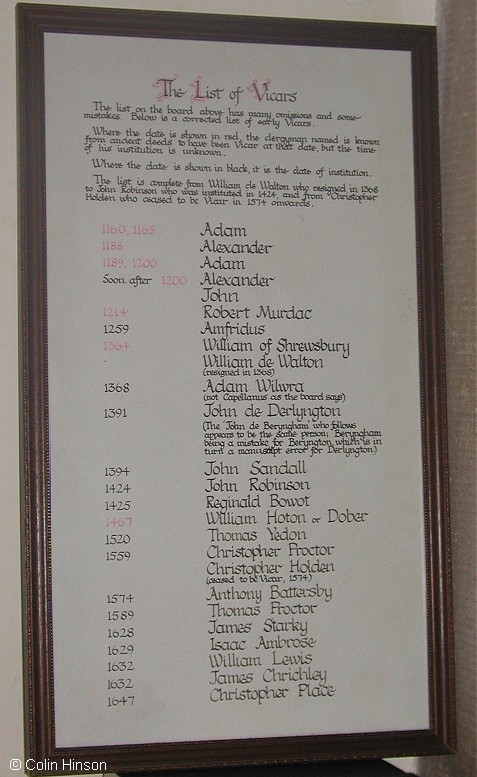 The List of Vicars
The list on the board above has many omissions and some
mistakes. Below is a corrected list of early Vicars.
Where the date is shown in red, the clergyman named is known
from ancient deeds to have been Vicar at that date, but the time
of his institution is unknown.
Where the date is shown in black, it is the date of institution.
The list is complete from William de Walton who resigned in 1368
to John Robinson who was instituted in 1424, and from Christopher
Holden who ceased to be Vicar in 1574 onwards.
1160, 1165 Adam
1188 Alexander
1189, 1200 Adam
Soon after 1200 Alexander
John
1214 Robert Murdac
1259 Amfridus
1364 William of Shrewsbury
William de Walton
(resigned in 1368)
1368 Adam Wilwra
(not Capellanus as the board says)
1391 John de Derlyngton
(The 'John de Beryngham' who follows
appears to be the same person; Beryngham
being a mistake for Beryngton which is in
turn a manuscript error for Derlyngton.)
1394 John Sandall
1424 John Robinson
1425 Reginald Bowot
1467 William Hoton or Dober
1520 Thomas Yedon
1559 Christopher Proctor
Christopher Holden
(ceased to be Vicar, 1574)
1574 Anthony Battersby
1589 Thomas Proctor
1628 James Starky
1629 Isaac Ambrose
1632 William Lewis
1632 James Chrichley
1647 Christopher Place
© Colin Hinson